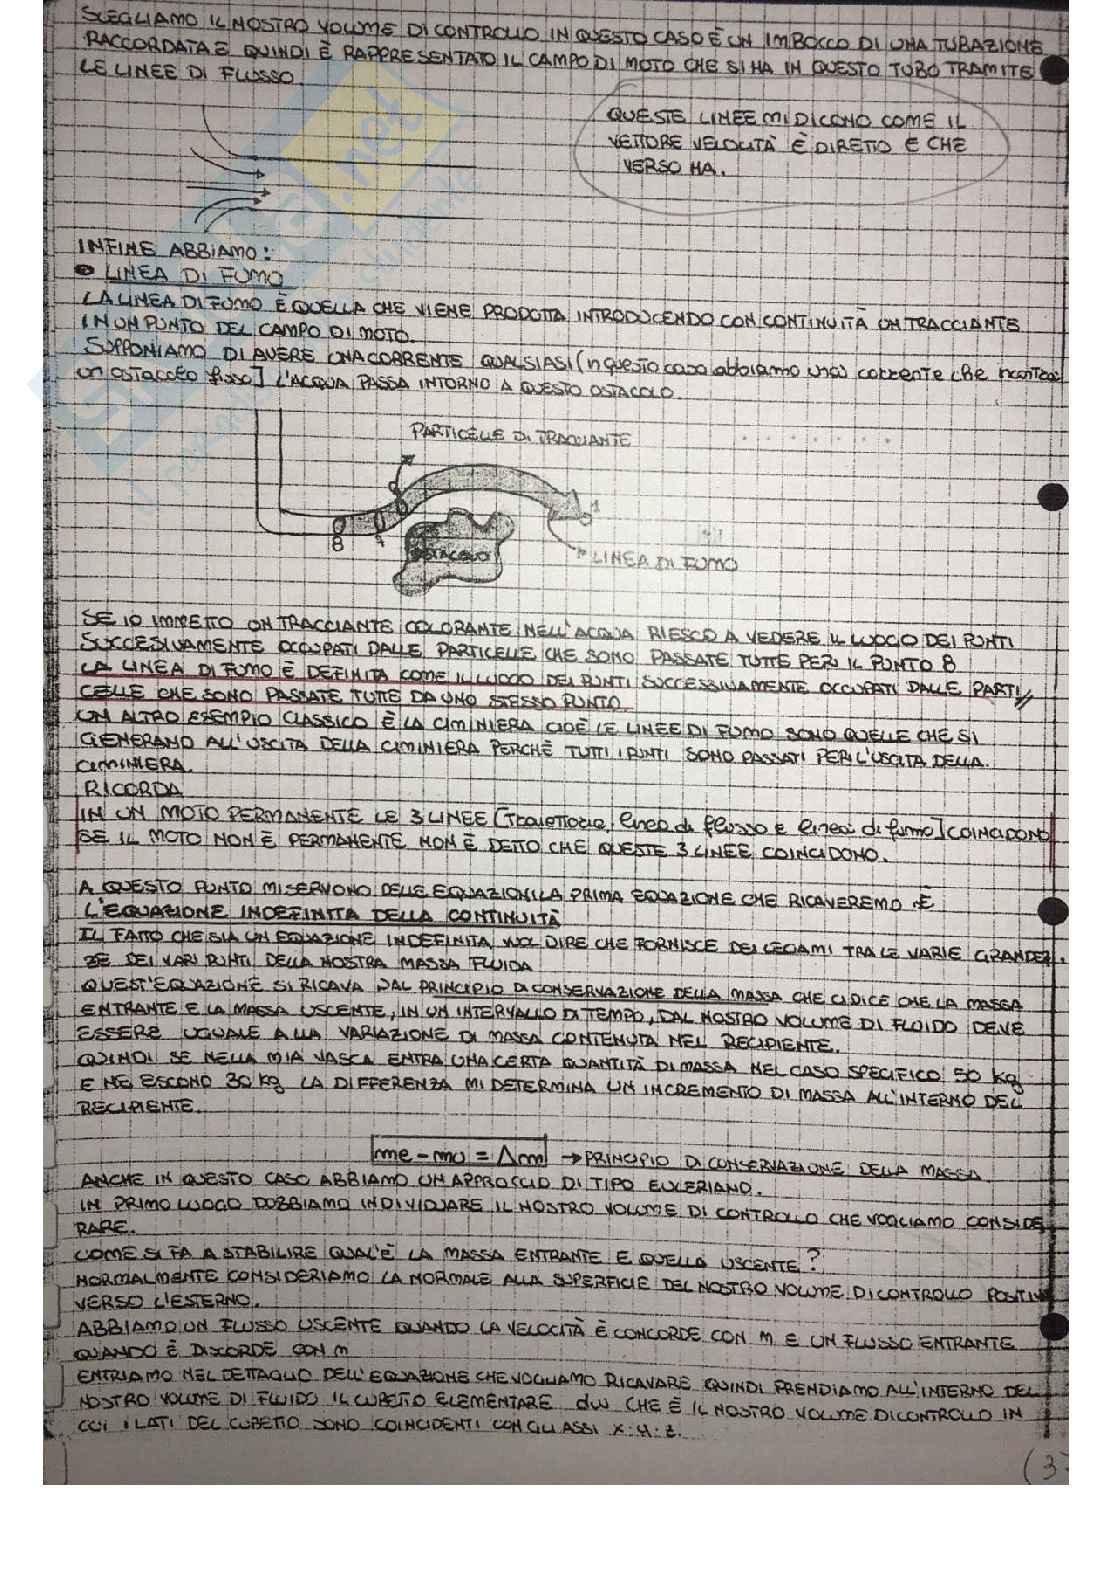 SCEGLIAMO IL NOSTRO VOLUME DI CONTROLLO IN QUESTO CASO È UN IMBOCCO DI UNA TUBAZIONE
RACCORDATA E QUINDI È RAPPRESENTATO IL CAMPO DI MOTO CHE SI HA IN QUESTO TUBO TRAMITE
LE LINEE DI FLUSSO.
QUESTE LINEE MI DICONO COME IL
VETTORE VELOCITÀ È DIRETTO E CHE
VERSO HA.
INFINE ABBIAMO:
LINEA DI FUMO
LA LINEA DI FUMO È QUELLA CHE VIENE PRODOTTA INTRODUCENDO CON CONTINUITÀ UN TRACCIANTE
IN UN PUNTO DEL CAMPO DI MOTO.
SUPPONIAMO DI AVERE UNA CORRENTE QUALSIASI (in questo caso abbiamo una corrente che incontra
un ostacolo fisso] L'ACQUA PASSA INTORNO A QUESTO OSTACOLO.
PARTICELLE DI TRACCIANTE
1
8
OSTACOLO
LINEA DI FUMO
SE IO IMMETTO UN TRACCIANTE COLORANTE NELL'ACQUA RIESCO A VEDERE IL LUOGO DEI PUNTI
SUCCESIVAMENTE OCCUPATI DALLE PARTICELLE CHE SONO PASSATE TUTTE PER IL PUNTO 8
LA LINEA DI FUMO È DEFINITA COME IL LUOGO DEI PUNTI SUCCESSIVAMENTE OCCUPATI DALLE PARTI
CELLE CHE SONO PASSATE TUTTE DA UNO STESSO PUNTO.
UN ALTRO ESEMPIO CLASSICO È LA CIMINIERA CIOÈ LE LINEE DI FUMO SONO QUELLE CHE SI
GENERANO ALL'USCITA DELLA CIMINIERA PERCHÈ TUTTI I PUNTI SONO PASSATI PER L'USCITA DELLA
CIMINIERA.
RICORDA
IN UN MOTO PERMANENTE LE 3 LINEE [Traiettoria, linea di flusso e linea di fumo] COINCIDONO
SE IL MOTO NON È PERMANENTE NON È DETTO CHE QUESTE 3 LINEE COINCIDONO.
A QUESTO PUNTO MI SERVONO DELLE EQUAZIONI. LA PRIMA EQUAZIONE CHE RICAVEREMO È
L'EQUAZIONE INDEFINITA DELLA CONTINUITÀ
IL FATTO CHE SIA UN EQUAZIONE INDEFINITA VUOL DIRE CHE FORNISCE DEI LEGAMI TRA LE VARIE GRANDEZ
ZE DEI VARI PUNTI DELLA NOSTRA MASSA FLUIDA
QUEST'EQUAZIONE SI RICAVA DAL PRINCIPIO DI CONSERVAZIONE DELLA MASSA CHE CI DICE CHE LA MASSA
ENTRANTE E LA MASSA USCENTE, IN UN INTERVALLO DI TEMPO, DAL NOSTRO VOLUME DI FLUIDO DEVE
ESSERE UGUALE ALLA VARIAZIONE DI MASSA CONTENUTA NEL RECIPIENTE.
QUINDI SE NELLA MIA VASCA ENTRA UNA CERTA QUANTITÀ DI MASSA NEL CASO SPECIFICO 50 kg
E NE ESCONO 30 kg LA DIFFERENZA MI DETERMINA UN INCREMENTO DI MASSA ALL'INTERNO DEL
RECIPIENTE.
me - mu = Δm → PRINCIPIO DI CONSERVAZIONE DELLA MASSA
ANCHE IN QUESTO CASO ABBIAMO UN APPROCCIO DI TIPO EULERIANO.
IN PRIMO LUOGO DOBBIAMO INDIVIDUARE IL NOSTRO VOLUME DI CONTROLLO CHE VOGLIAMO CONSIDE
RARE.
COME SI FA A STABILIRE QUAL'È LA MASSA ENTRANTE E QUELLA USCENTE?
NORMALMENTE CONSIDERIAMO LA NORMALE ALLA SUPERFICIE DEL NOSTRO VOLUME DI CONTROLLO POSITIVA
VERSO L'ESTERNO.
ABBIAMO UN FLUSSO USCENTE QUANDO LA VELOCITÀ È CONCORDE CON n E UN FLUSSO ENTRANTE
QUANDO È DISCORDE CON n
ENTRIAMO NEL DETTAGLIO DELL'EQUAZIONE CHE VOGLIAMO RICAVARE QUINDI PRENDIAMO ALL'INTERNO DEL
NOSTRO VOLUME DI FLUIDO IL CUBETTO ELEMENTARE dw CHE È IL NOSTRO VOLUME DI CONTROLLO IN
CUI I LATI DEL CUBETTO SONO COINCIDENTI CON GLI ASSI x; y; z.